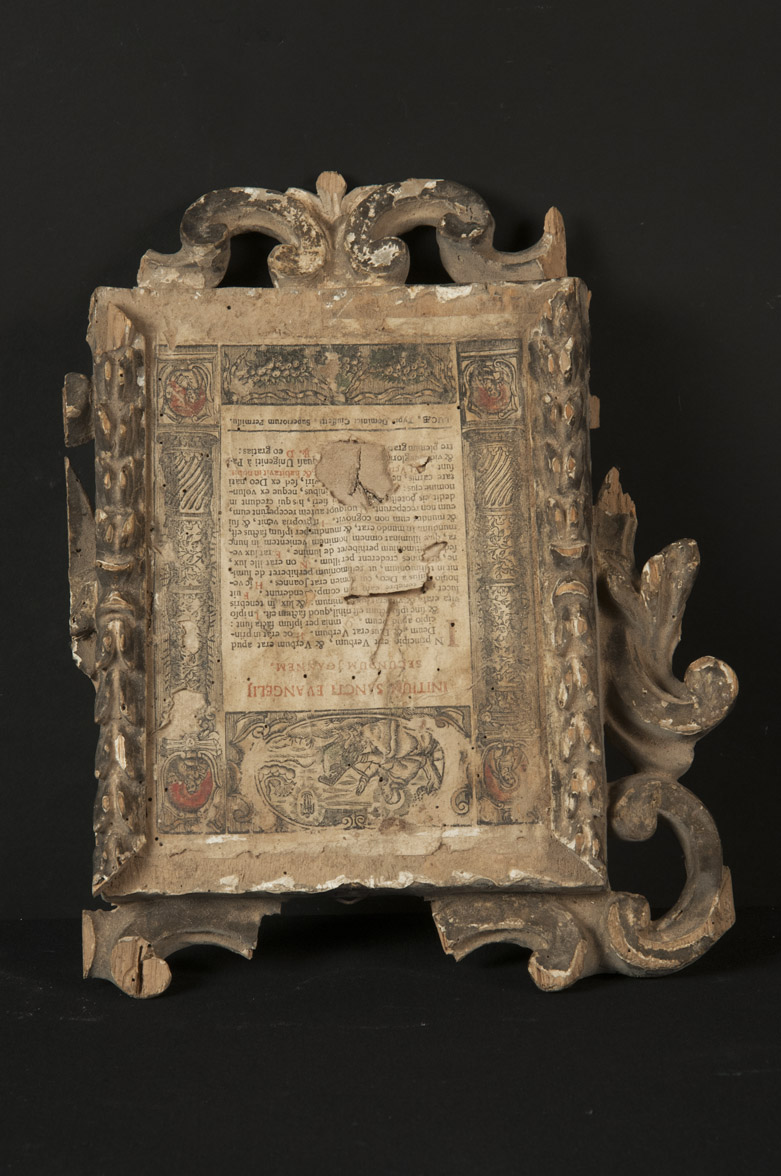 INITIUM SANCTI EVANGELIJ
SECUNDUM IOANNEM.
IN principio erat Verbum, & Verbum erat apud
Deum, & Deus erat Verbum. Hoc erat in prin-
cipio apud Deum. Omnia per ipsum facta sunt:
& sine ipso factum est nihil, quod factum est, in ipso
vita erat, & vita erat lux & lux in tenebris
lucet, & comprehenderunt. Fuit
homo missus à Deo, cui nomen erat Joannes. Hic ve-
nit in testimonium, ut testimonium perhiberet de lumi-
ne, crederent per illum. Non erat ille lux
sed ut testimonium perhiberet de lumine. Erat lux ve-
ra, illuminat omnem hominem venientem in hunc
mundum. In mundo erat, & mundus per ipsum factus est
& mundus eum non cognovit. In propria venit, & sui
eum non receperunt. quotquot autem receperunt eum
dedit eis fieri, his qui credunt in
nomine ejus: neque ex volun-
tate carnis, ne viri, sed ex Deo nati
sunt. & habitavit in nobis
& vidi gloria quasi Unigeniti à Pa-
tre plenum gratiæ R. Deo gratias.
LUCÆ, Typis Dominici Ciuffetti Superiorum Permissu.